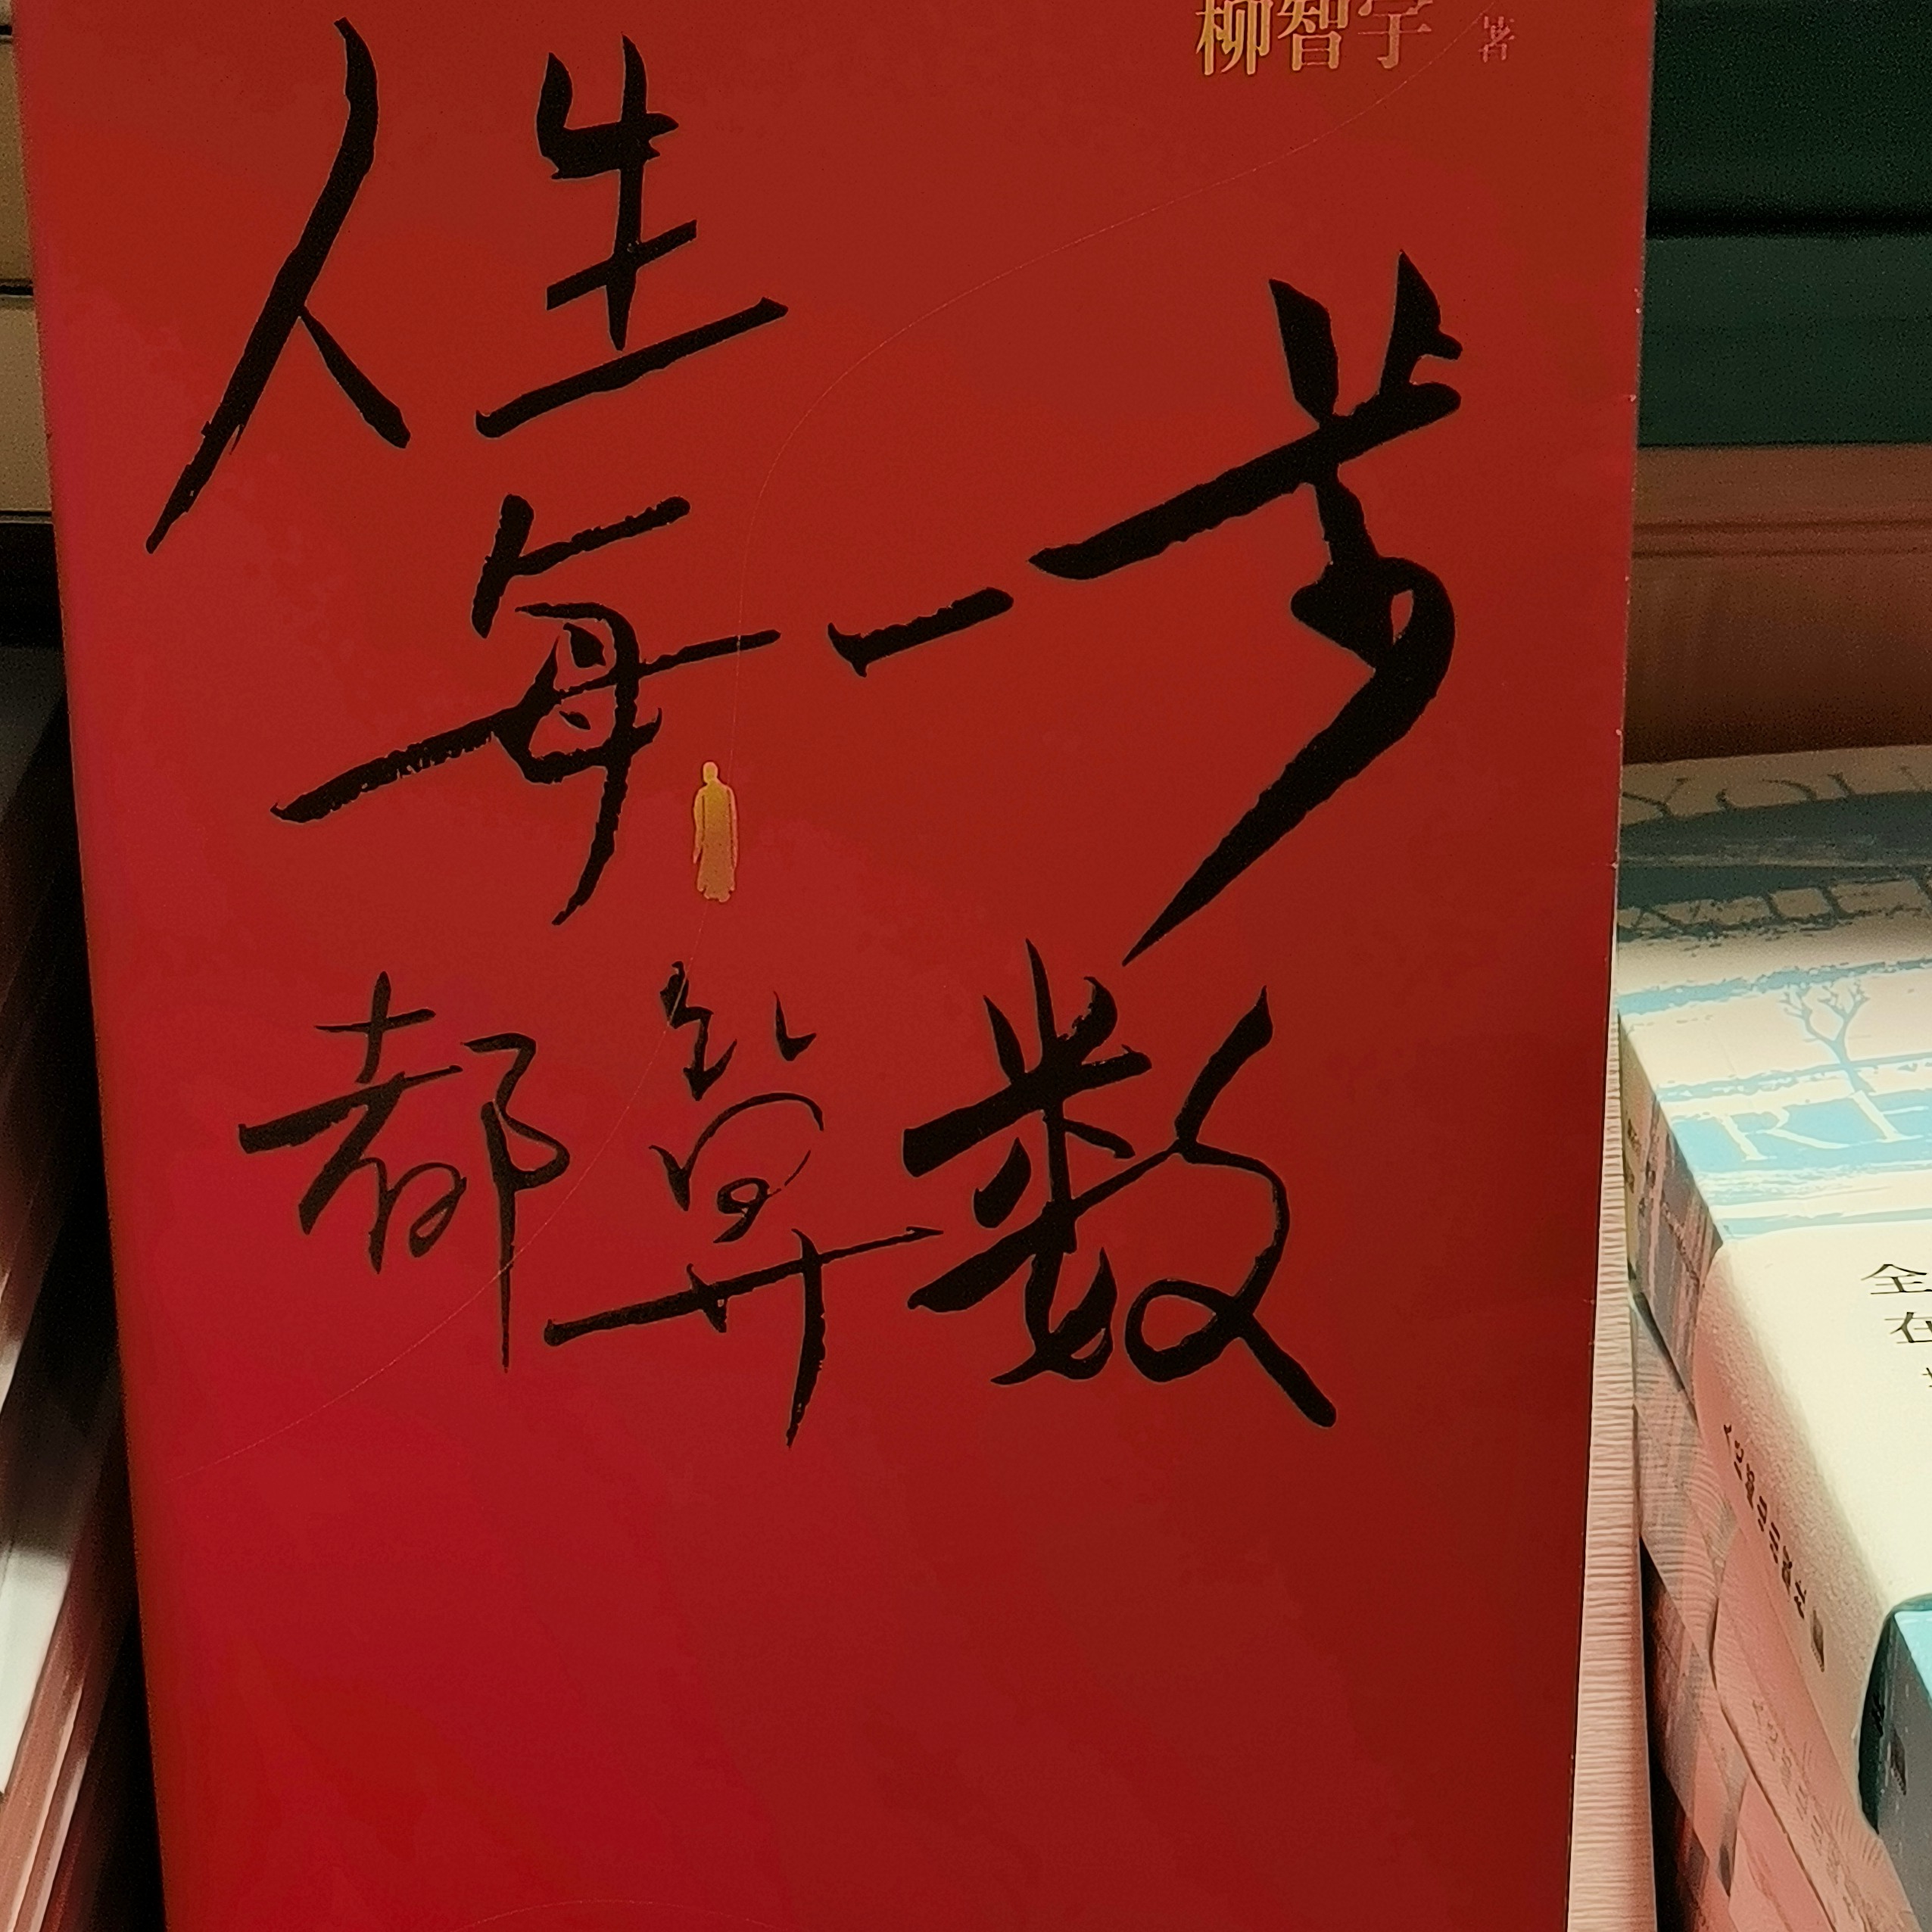 柳智宇 著
人生
每一步
都算数
YOU
RI
全
在